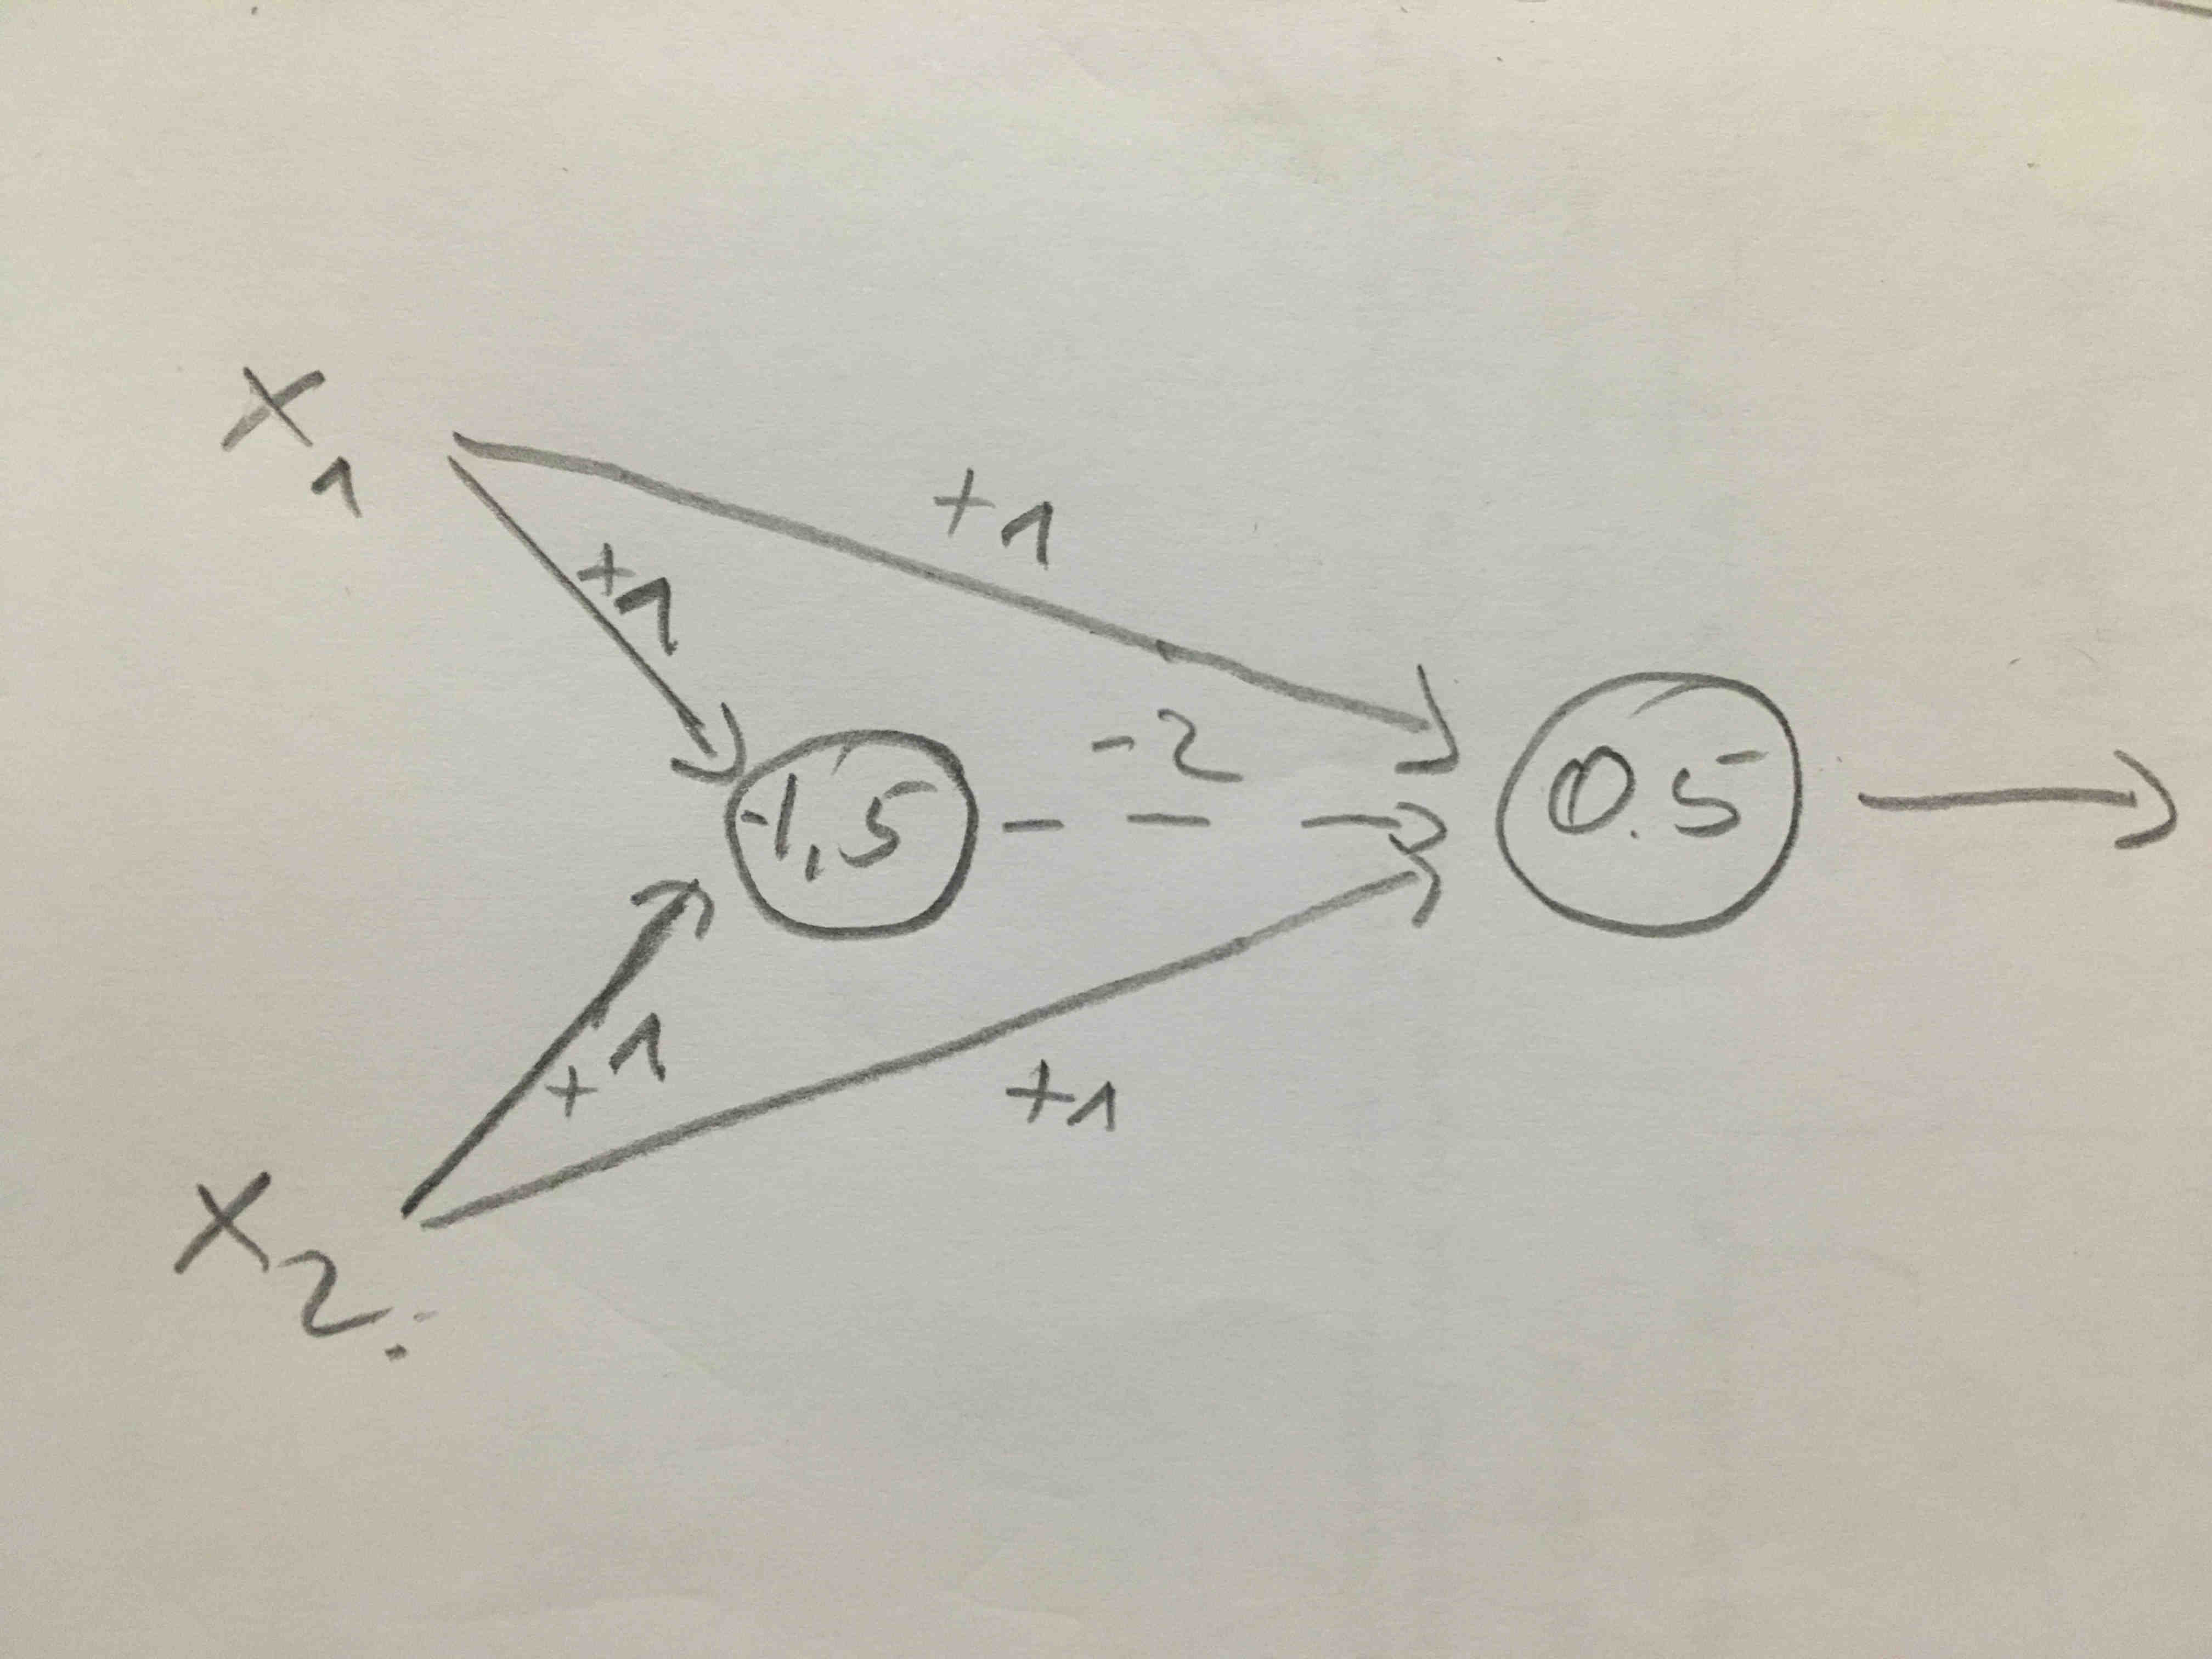 x1
+1
+1
-2
-1,5
0.5
+1
+1
x2